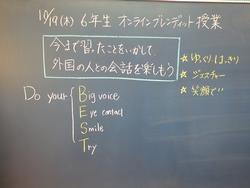 10/19(木) 6年生 オンラインブレンディット授業
今まで習ったことをいかして、
外国の人との会話を楽しもう
☆ ゆっくりはっきり
☆ ジェスチャー
☆ 笑顔で!!
Do your
Big voice
Eye contact
Smile
Try